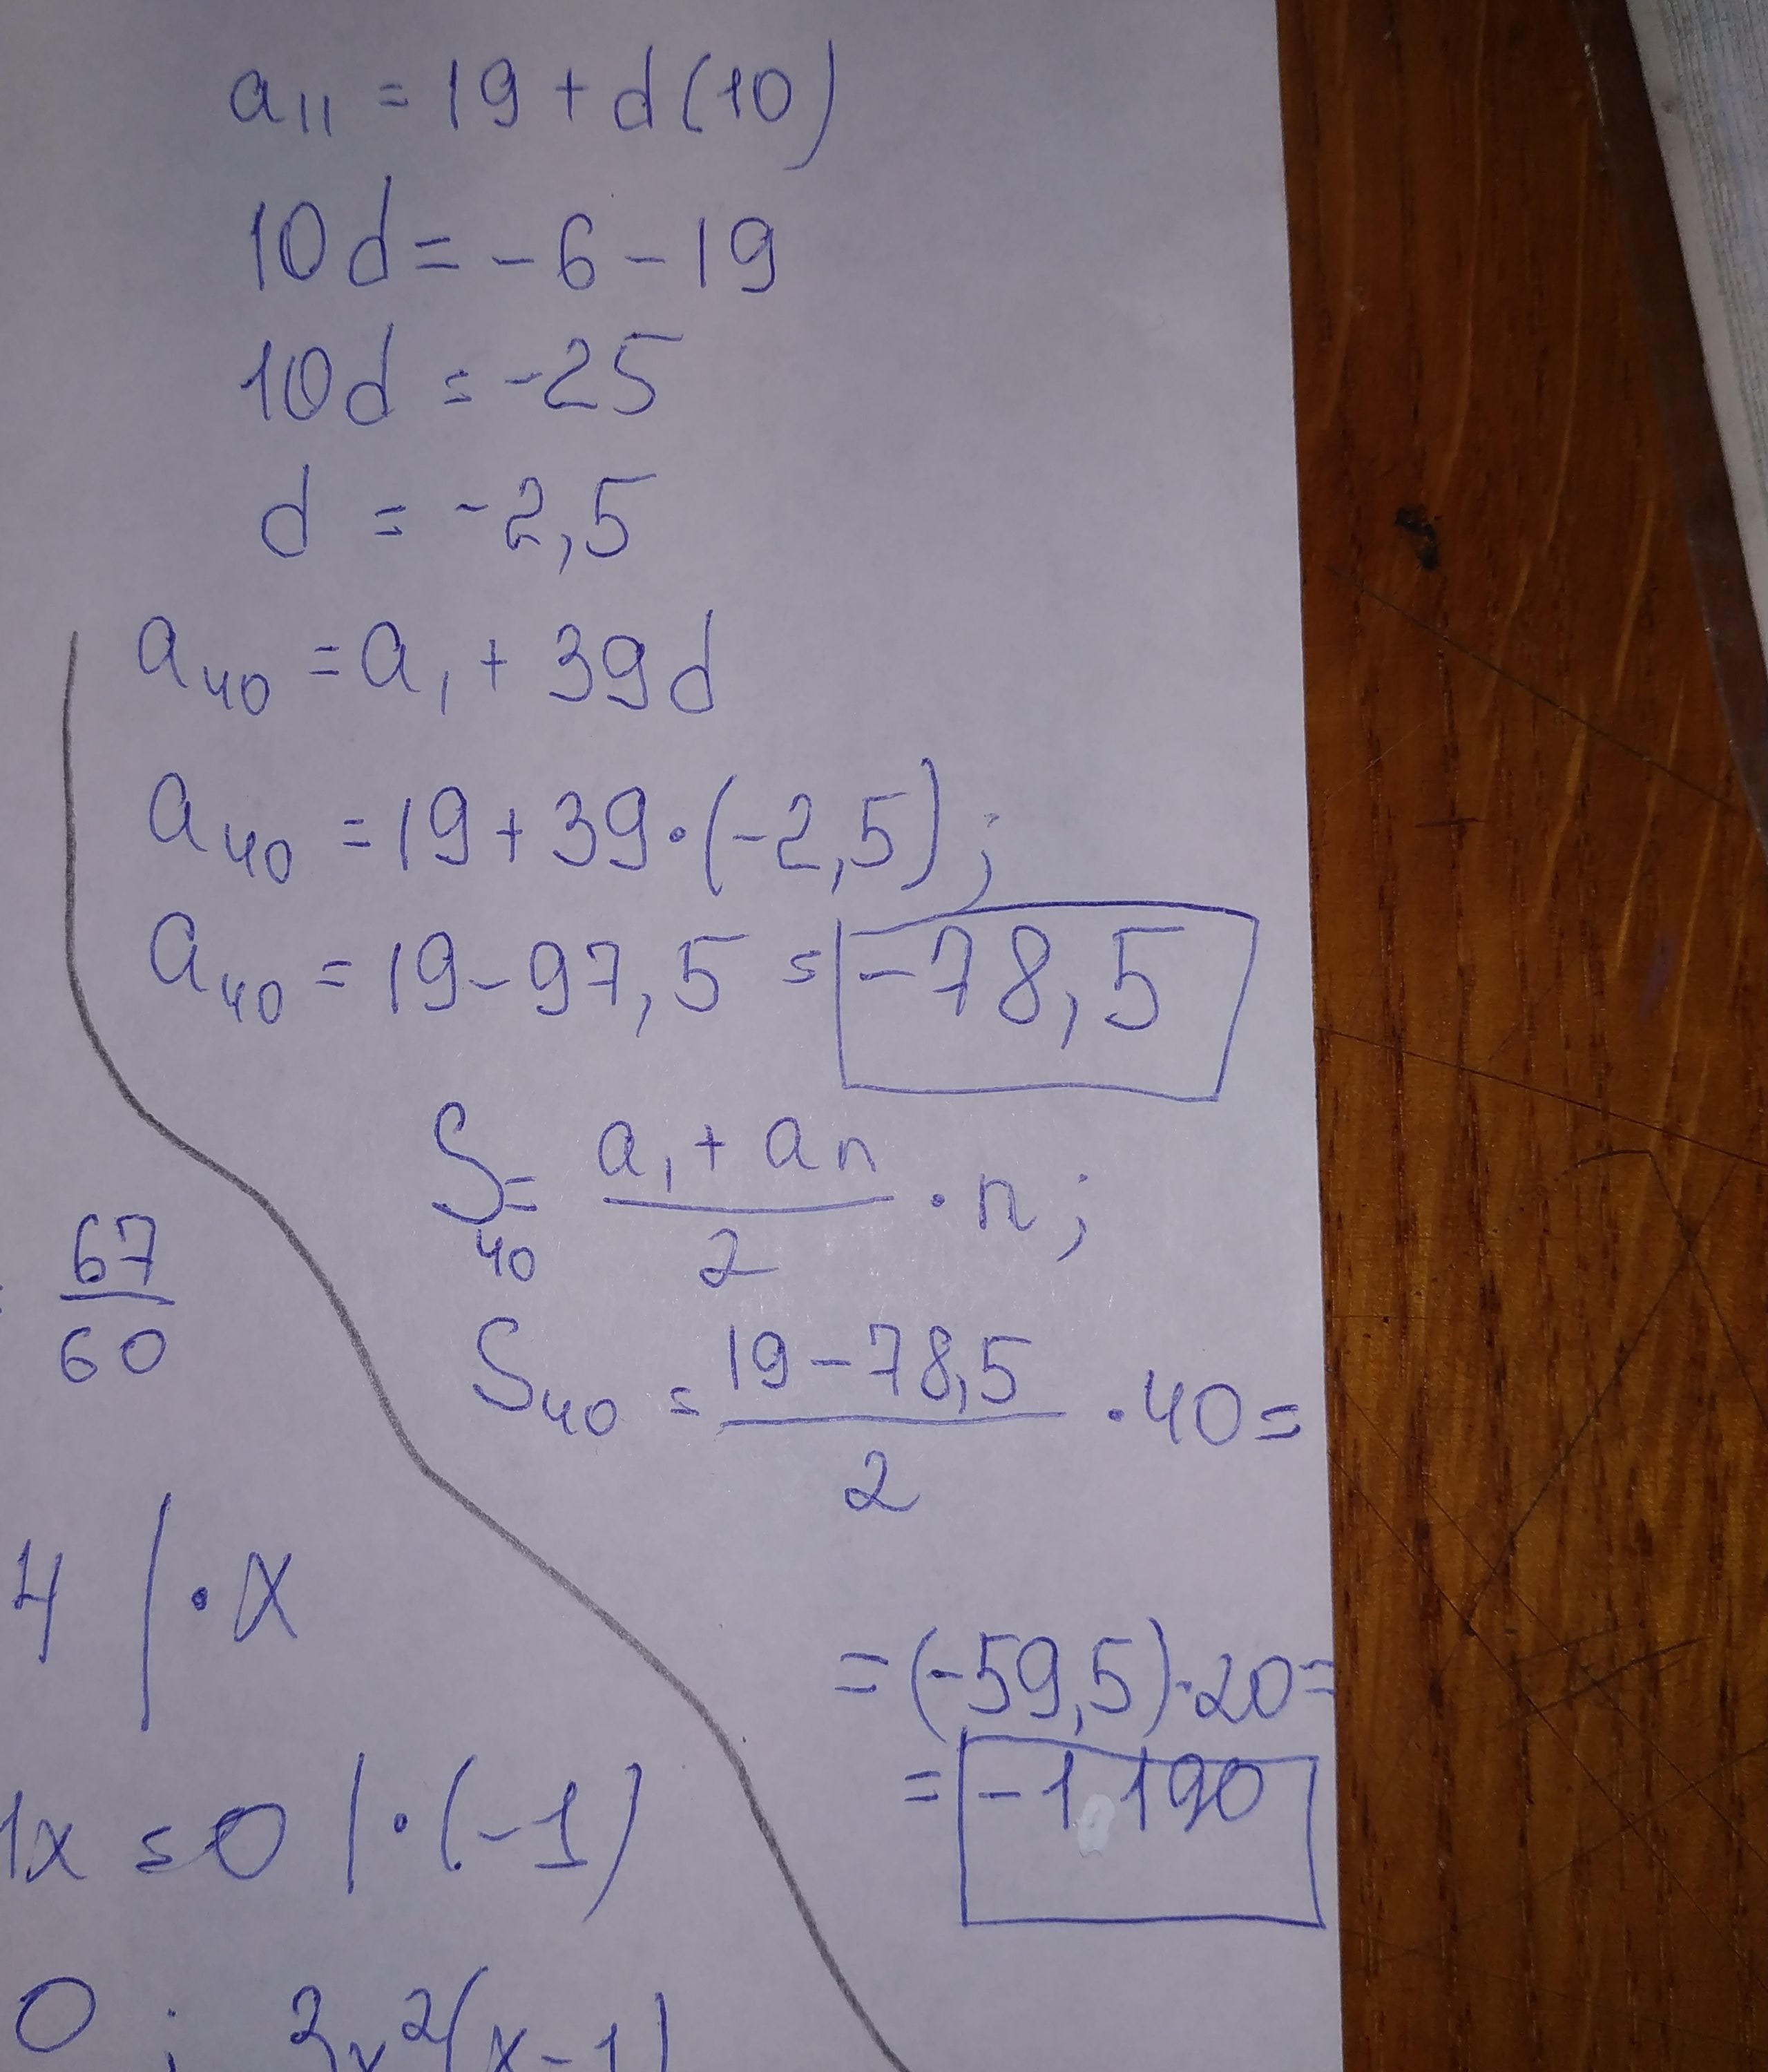 a₁₁ = 19 + d(10)
10d = -6 - 19
10d = -25
d = -2,5
a₄₀ = a₁ + 39d
a₄₀ = 19 + 39·(-2,5);
a₄₀ = 19 - 97,5 = -78,5
S₄₀ = (a₁ + aₙ)/2 · n;
67/60
S₄₀ = (19 - 78,5)/2 · 40 =
4 | · x
= (-59,5)·20 =
= -1190
1x = 0 | · (-1)
0 ; 3x²(x-1)